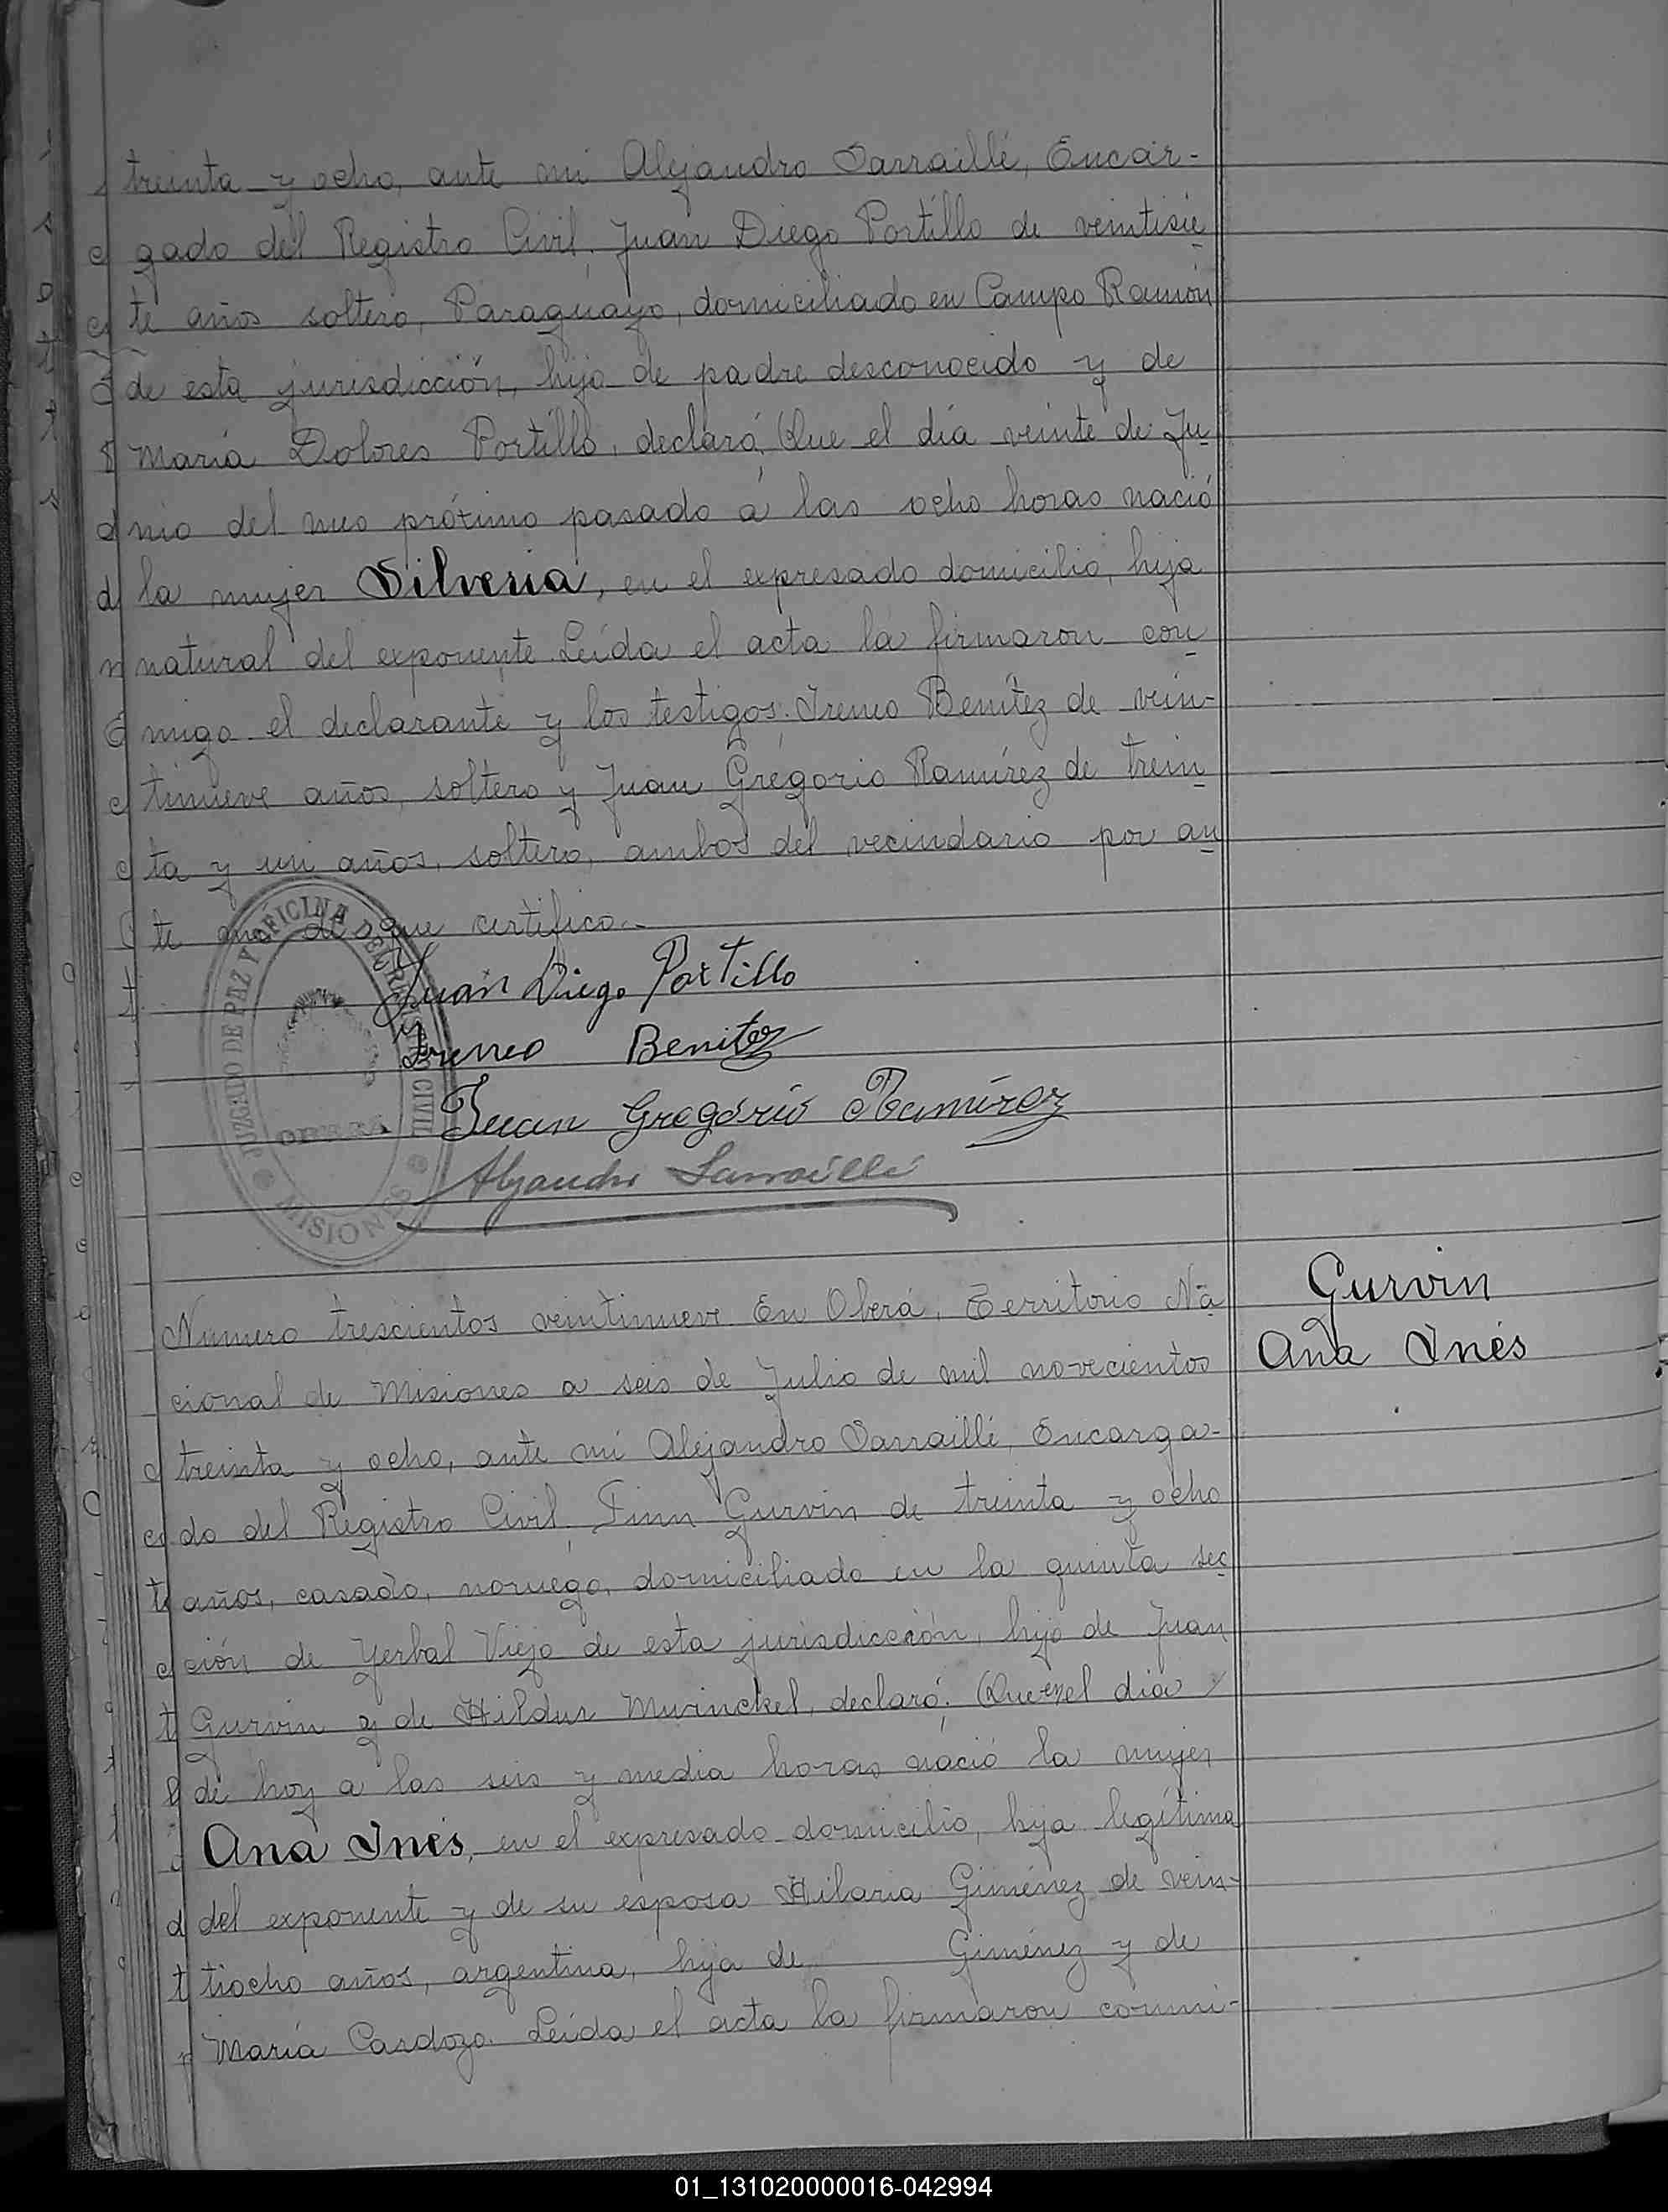 treinta y ocho, ante mi Alejandro Sarraillé, Encar-
gado del Registro Civil. Juan Diego Portillo de veintisie
te años soltero, Paraguayo, domiciliado en Campo Ramón
de esta jurisdicción, hijo de padre desconocido y de
María Dolores Portillo, declaró: Que el día veinte de Ju
nio del mes próximo pasado á las ocho horas nació
la mujer Silveria, en el expresado domicilio, hija
natural del exponente. Leída el acta la firmaron con
migo el declarante y los testigos: Ireneo Benítez de vein-
tinueve años, soltero y Juan Grégorio Ramírez de trein
ta y un años, soltero, ambos del vecindario por an
te mi de que certifico.-
JUZGADO DE PAZ Y OFICINA DEL REGISTRO CIVIL
OBERA
MISIONES
Juan Diego Portillo
Ireneo Benitez
Juan Gregorio Ramírez
Alejandro Sarraillé
Gurvin
Ana Inés
Número trescientos veintinueve. En Oberá, Territorio Na
cional de Misiones a seis de Julio de mil novecientos
treinta y ocho, ante mí Alejandro Sarraillé, Encarga-
do del Registro Civil. Finn Gurvin de treinta y ocho
años, casado, noruego, domiciliado en la quinta sec
ción de Yerbal Viejo de esta jurisdicción, hijo de Juan
Gurvin y de Hildur Mwinckel, declaró: Que el día
de hoy a las seis y media horas nació la mujer
Ana Inés, en el expresado domicilio, hija legítima
del exponente y de su esposa Hilaria Giménez de vein-
tiocho años, argentina, hija de Giménez y de
María Cardozo. Leída el acta la firmaron conmi-
01_131020000016-042994